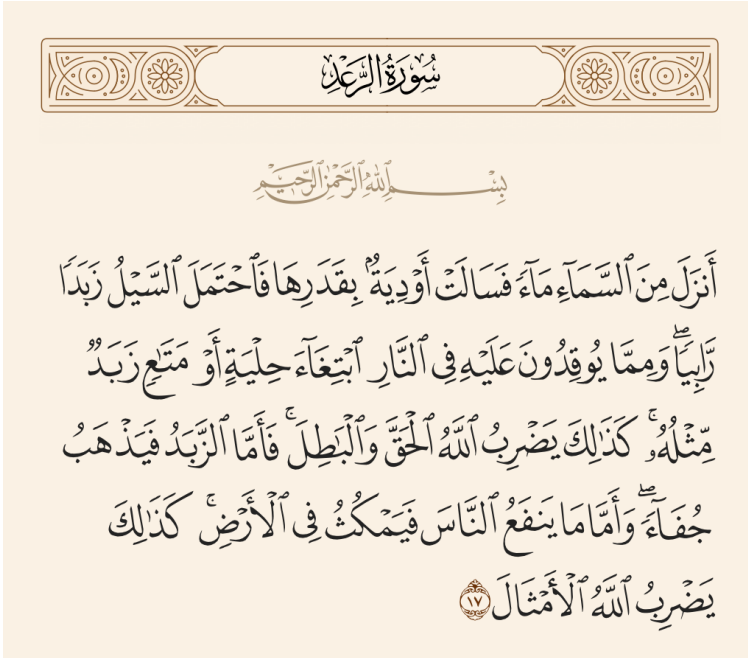 سُورَةُ الرَّعْدِ
بِسْمِ ٱللَّهِ ٱلرَّحْمَٰنِ ٱلرَّحِيمِ
أَنزَلَ مِنَ ٱلسَّمَآءِ مَآءً فَسَالَتْ أَوْدِيَةٌۢ بِقَدَرِهَا فَٱحْتَمَلَ ٱلسَّيْلُ زَبَدًا
رَّابِيًاۖ وَمِمَّا يُوقِدُونَ عَلَيْهِ فِى ٱلنَّارِ ٱبْتِغَآءَ حِلْيَةٍ أَوْ مَتَٰعٍ زَبَدٌ
مِّثْلُهُۥۚ كَذَٰلِكَ يَضْرِبُ ٱللَّهُ ٱلْحَقَّ وَٱلْبَٰطِلَۚ فَأَمَّا ٱلزَّبَدُ فَيَذْهَبُ
جُفَآءًۖ وَأَمَّا مَا يَنفَعُ ٱلنَّاسَ فَيَمْكُثُ فِى ٱلْأَرْضِۚ كَذَٰلِكَ
يَضْرِبُ ٱللَّهُ ٱلْأَمْثَالَ ١٧